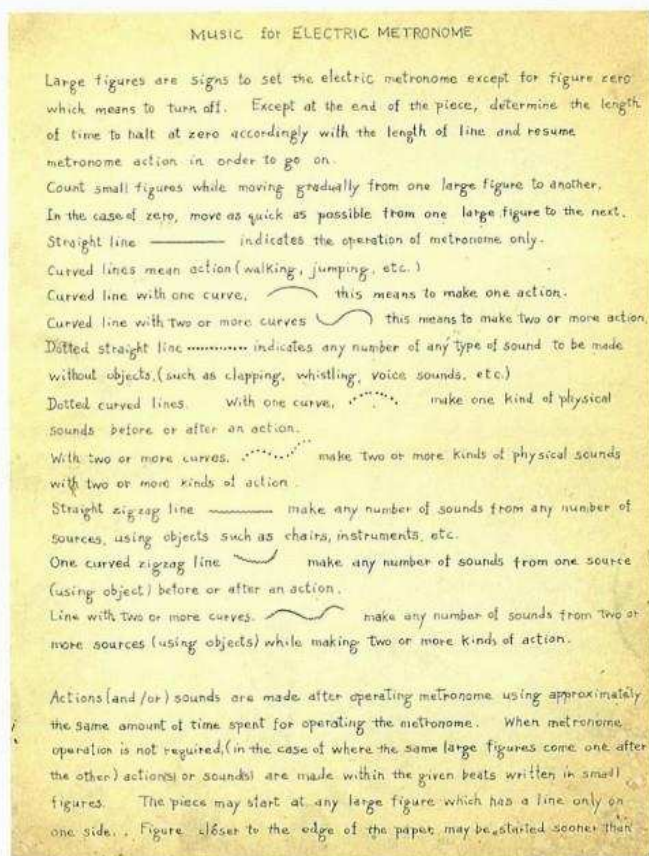 MUSIC for ELECTRIC METRONOME
Large figures are signs to set the electric metronome except for figure zero
which means to turn off. Except at the end of the piece, determine the length
of time to halt at zero accordingly with the length of line and resume
metronome action in order to go on.
Count small figures while moving gradually from one large figure to another.
In the case of zero, move as quick as possible from one large figure to the next.
Straight line indicates the operation of metronome only.
Curved lines mean action (walking, jumping, etc.)
Curved line with one curve, this means to make one action.
Curved line with two or more curves this means to make two or more action.
Dotted straight line indicates any number of any type of sound to be made
without objects, (such as clapping, whistling, voice sounds, etc.)
Dotted curved lines. With one curve, make one kind of physical
sounds before or after an action.
With two or more curves. make two or more kinds of physical sounds
with two or more kinds of action.
Straight zigzag line make any number of sounds from any number of
sources, using objects such as chairs, instruments, etc.
One curved zigzag line make any number of sounds from one source
(using object) before or after an action.
Line with two or more curves. make any number of sounds from two or
more sources (using objects) while making two or more kinds of action.
Actions (and/or) sounds are made after operating metronome using approximately
the same amount of time spent for operating the metronome. When metronome
operation is not required, (in the case of where the same large figures come one after
the other) action(s) or sound(s) are made within the given beats written in small
figures. The piece may start at any large figure which has a line only on
one side.. Figure closer to the edge of the paper, may be started sooner than